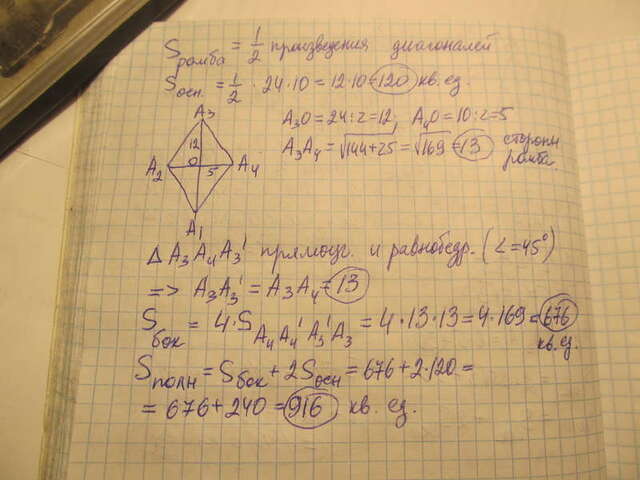 Sромба = 1/2 произведения диагоналей
Sосн. = 1/2 · 24·10 = 12·10 = 120 кв. ед.
A3
A3O = 24:2=12; A4O = 10:2=5
12
A3A4 = √144+25 = √169 = 13 стороны ромба.
A2 O 5 A4
A1
Δ A3A4A3' прямоуг. и равнобедр. (∠=45°)
=> A3A3' = A3A4 = 13
Sбок = 4·S A4A4'A3'A3 = 4·13·13 = 4·169 = 676 кв. ед.
Sполн = Sбок + 2Sосн = 676 + 2·120 =
= 676 + 240 = 916 кв. ед.